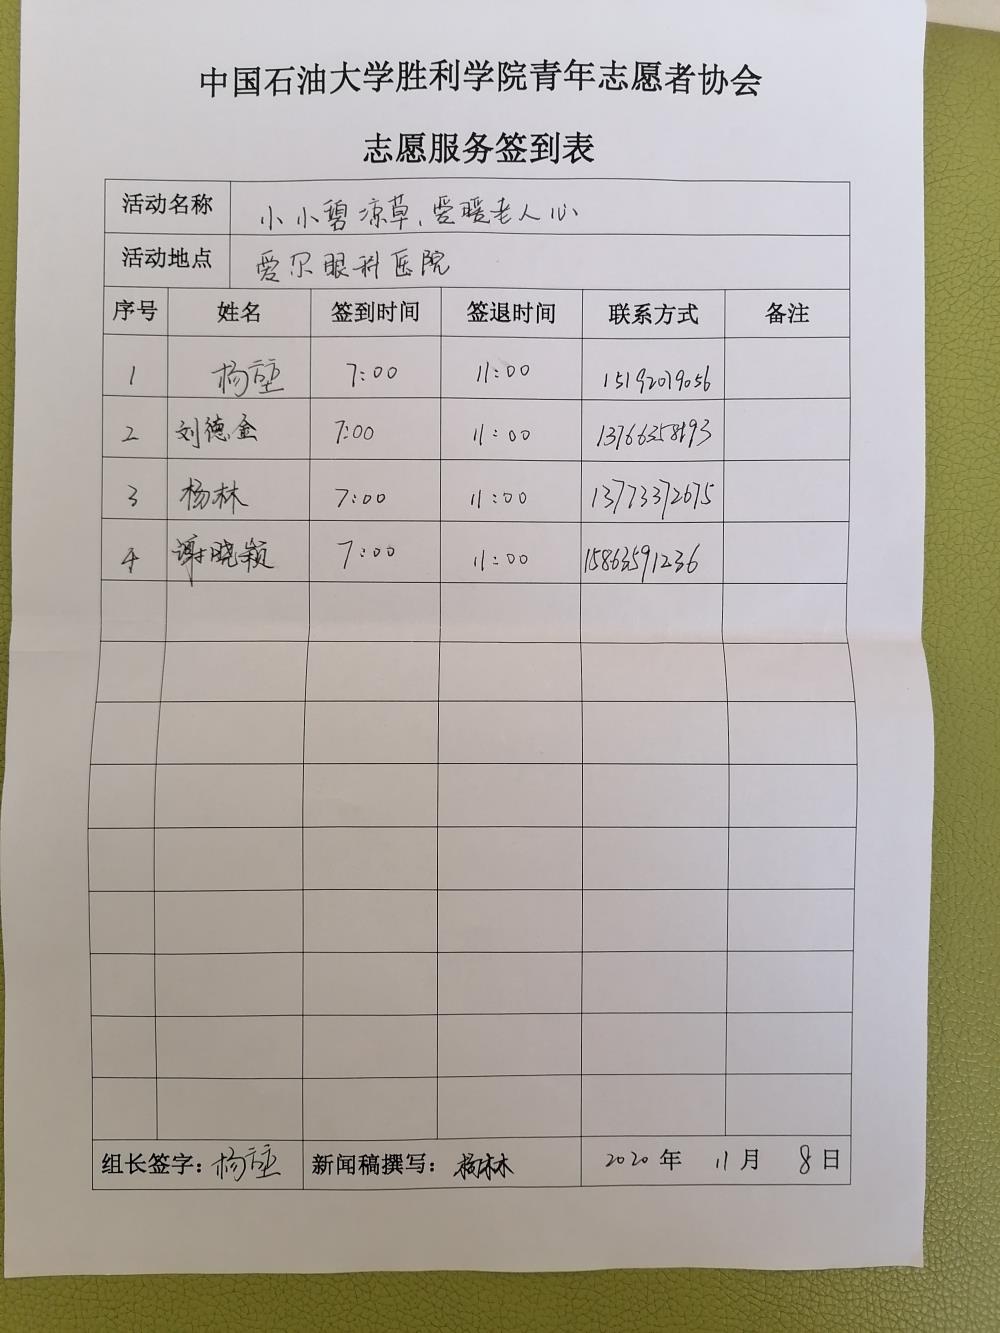 中国石油大学胜利学院青年志愿者协会
志愿服务签到表
活动名称 小小碧凉草,爱暖老人心
活动地点 爱尔眼科医院
序号 姓名 签到时间 签退时间 联系方式 备注
1 杨 7:00 11:00 15192019056
2 刘德金 7:00 11:00 13766358193
3 杨林 7:00 11:00 13773372675
4 谢晓颖 7:00 11:00 15863591236
组长签字: 杨 新闻稿撰写: 杨林 2020 年 11 月 8 日